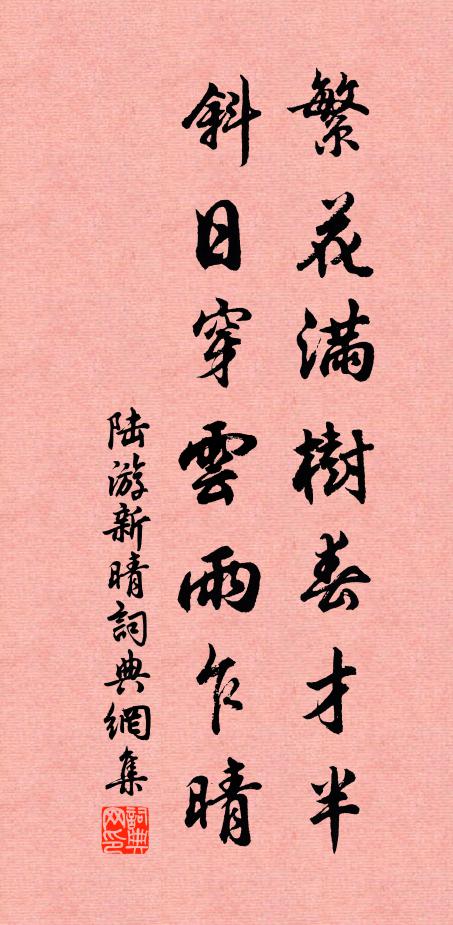 繁花满樹春才半
斜日穿雲雨乍晴
陆游新晴詞典網集
詞典网印